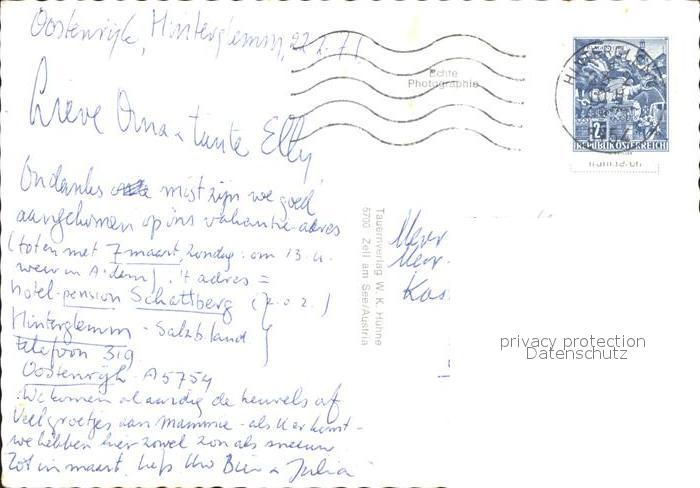 Oostenrijk, Hinterglemm, 22.2.71.
Lieve Oma & tante Elly,
Ondanks mist zijn we goed
aangekomen op ons vakantie-adres
(tot en met 7 maart, zondag: om 13 u.
weer in A'dam). 't adres =
hotel-pension Schattberg (z.o.z.)
Hinterglemm - Salzb.land
telefoon 319
Oostenrijk - A5754
We komen al aardig de heuvels af
Veel groetjes aan Mammie - als U er komt -
we hebben hier zowel zon als sneeuw
Tot in maart. liefs Uw Bien & Julia
Echte
Photographie
REPUBLIK ÖSTERREICH
Tauernverlag W. K. Huhne
5700 Zell am See/Austria
privacy protection
Datenschutz